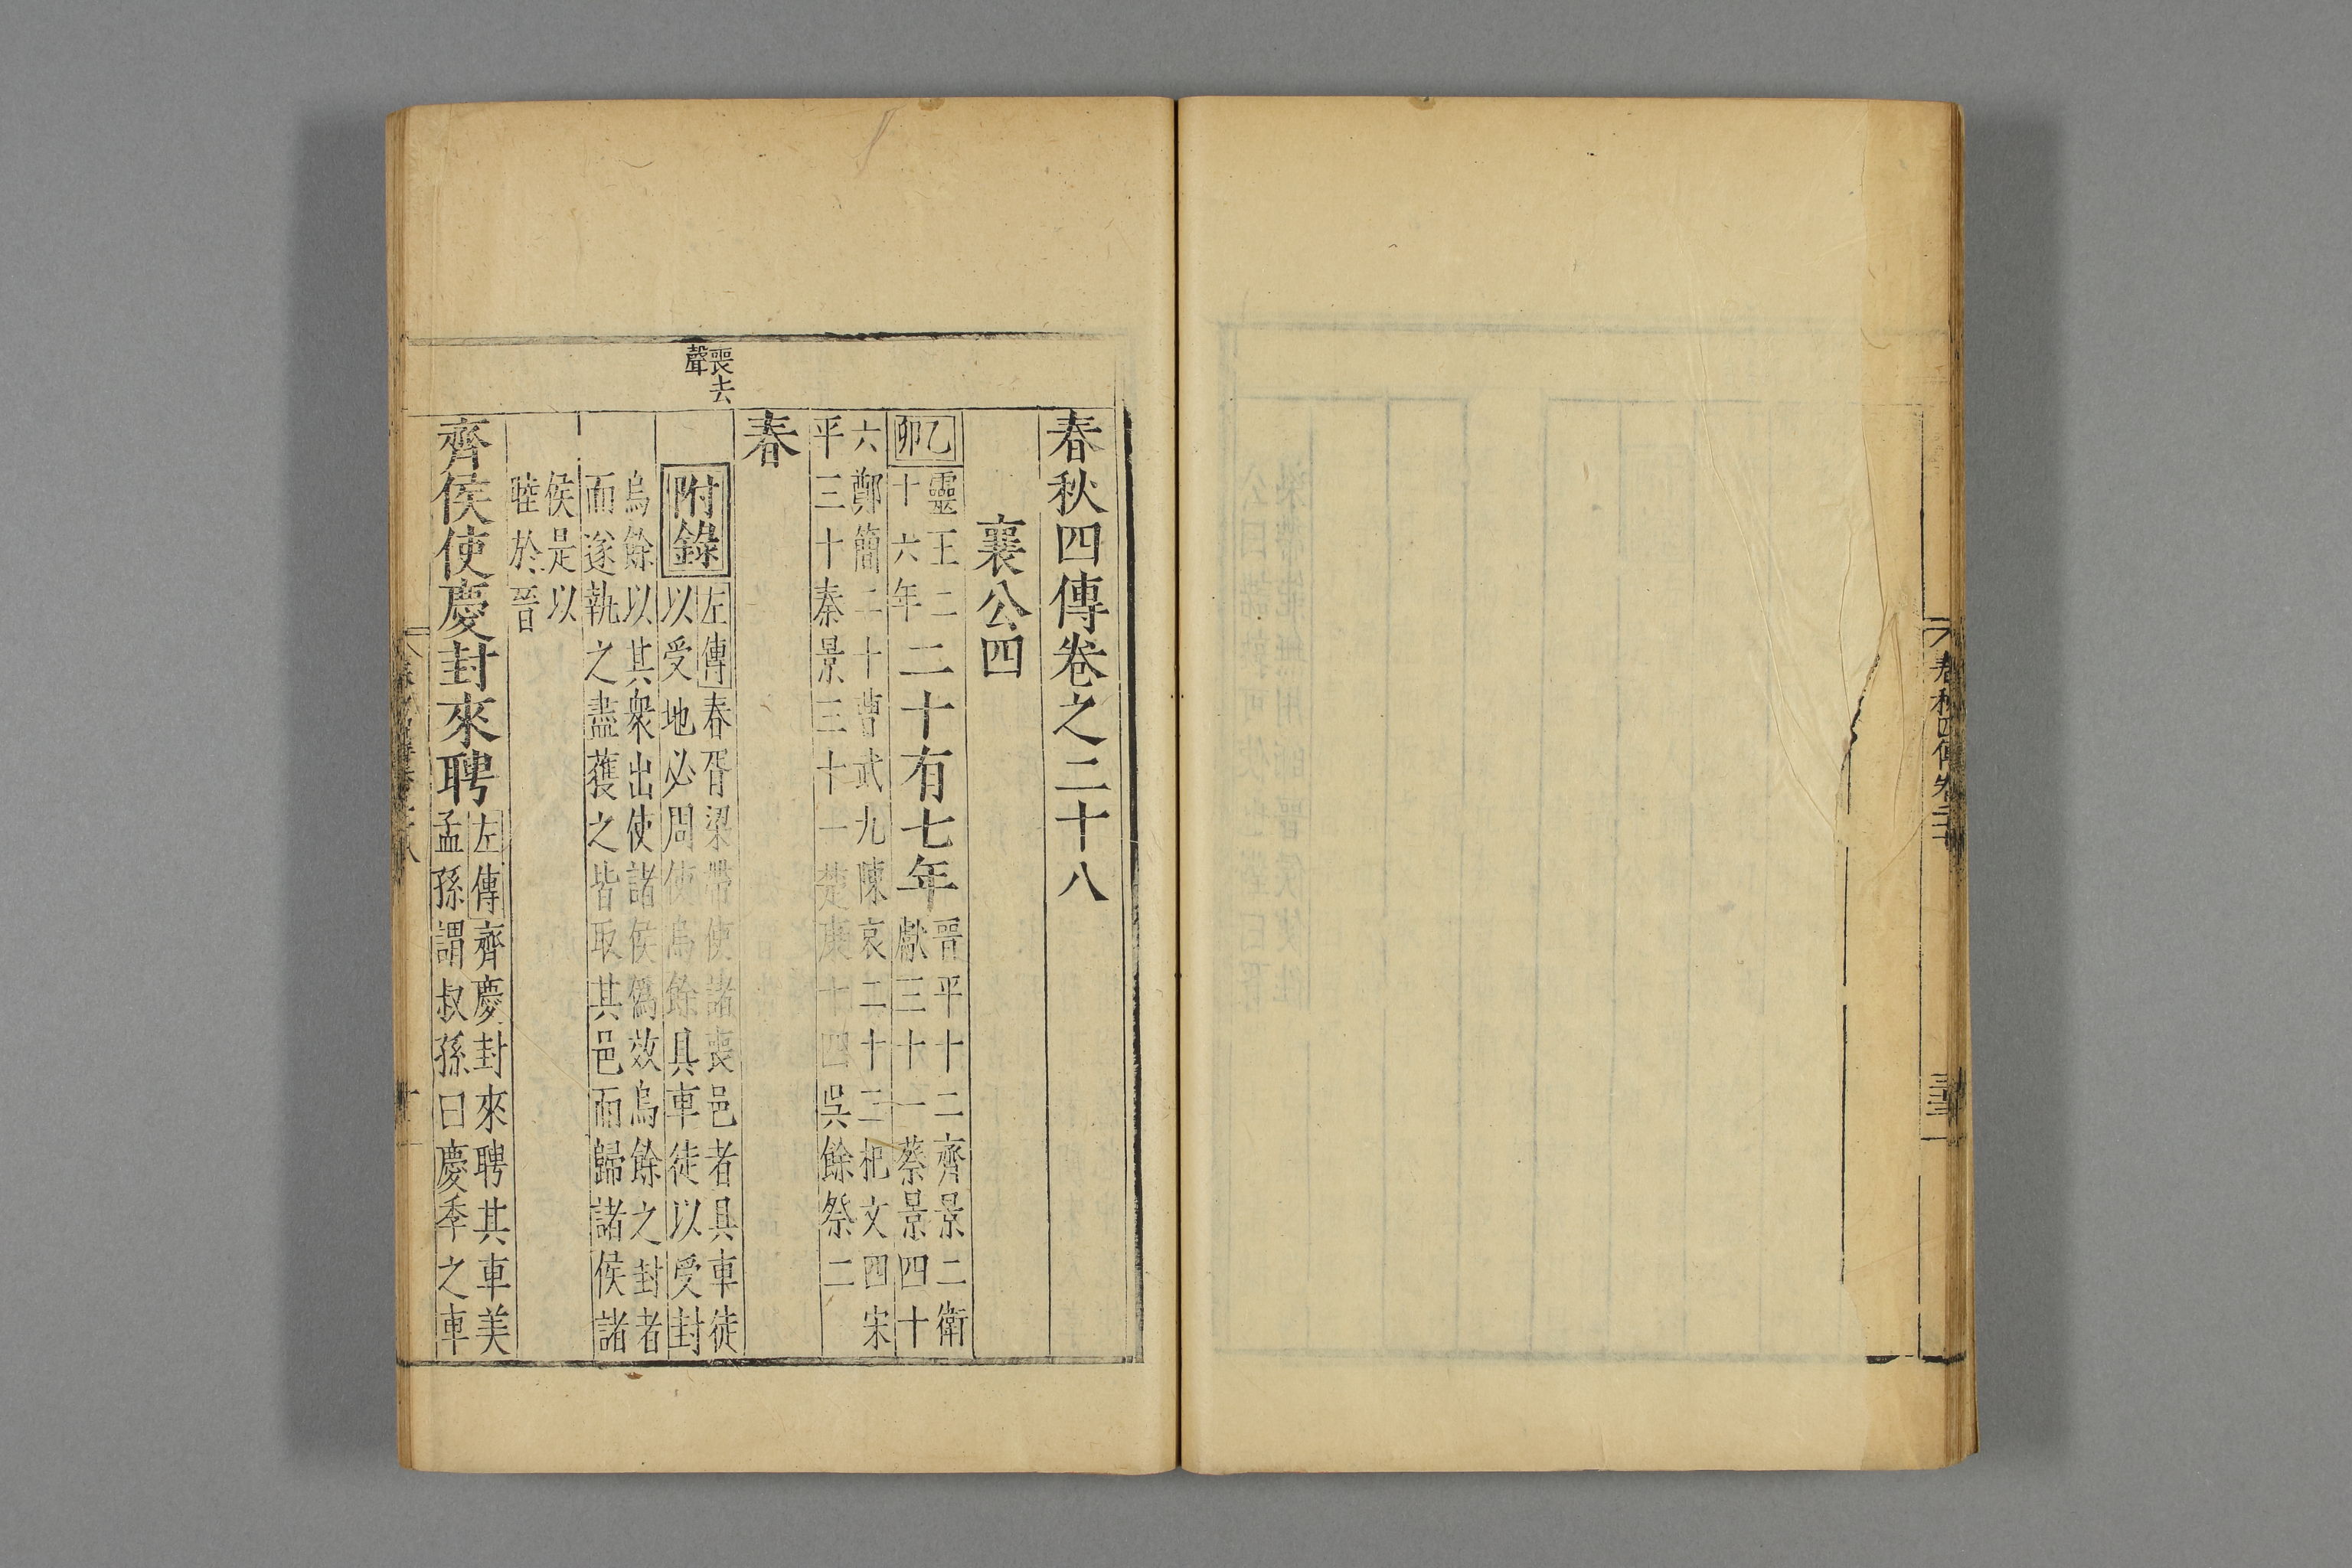 春秋四傳卷之二十八
襄公四
乙卯
靈王二
十六年
二十有七年
晉平十二齊景二衛
獻三十一蔡景四十
六鄭簡二十曹武九陳哀二十三杞文四宋
平三十秦景三十一楚康十四吳餘祭二
春
喪去
聲
附錄
左傳春胥梁帶使諸喪邑者具車徒
以受地必周使烏餘具車徒以受封
烏餘以其衆出使諸侯僞效烏餘之封者
而遂執之盡獲之皆取其邑而歸諸侯諸
侯是以
睦於晉
齊侯使慶封來聘
左傳齊慶封來聘其車美
孟孫謂叔孫曰慶季之車